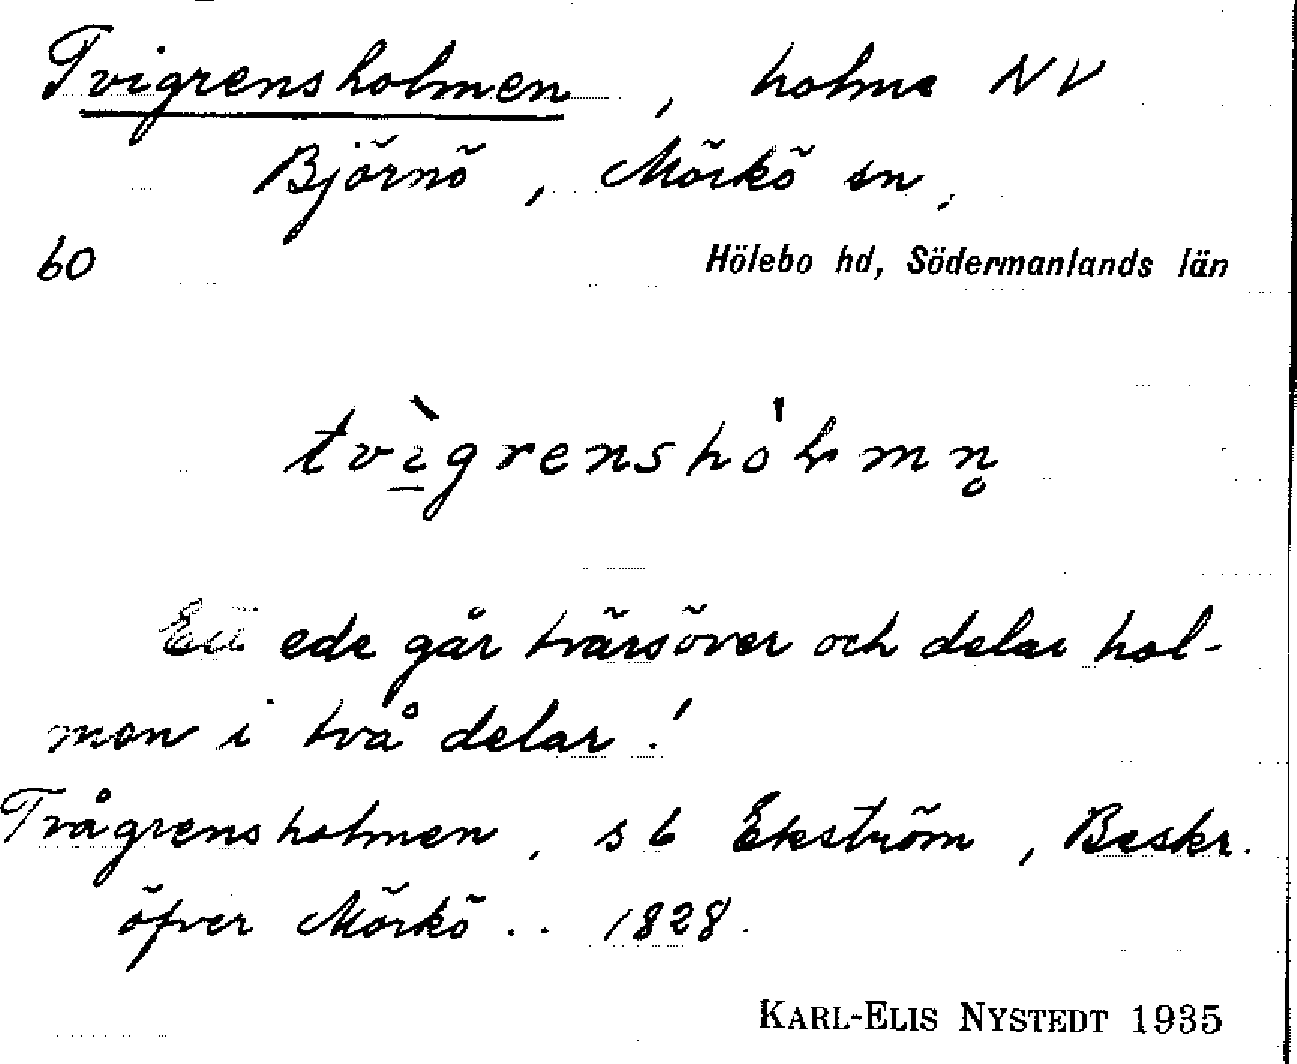 Tvigrensholmen, holme NV
Björnö, Mörkö sn,
60
Hölebo hd, Södermanlands län
tvìgrenshólmn̥
Ett ede går tvärsöver och delar hol-
men i två delar!
Tvågrensholmen, s 6 Ekström, Beskr.
öfver Mörkö .. 1828.
KARL-ELIS NYSTEDT 1935